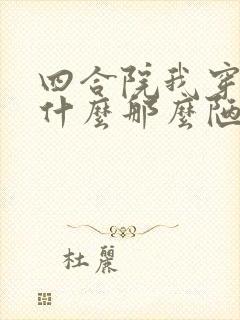 四合院我穿
什麼那麼陋
杜麗